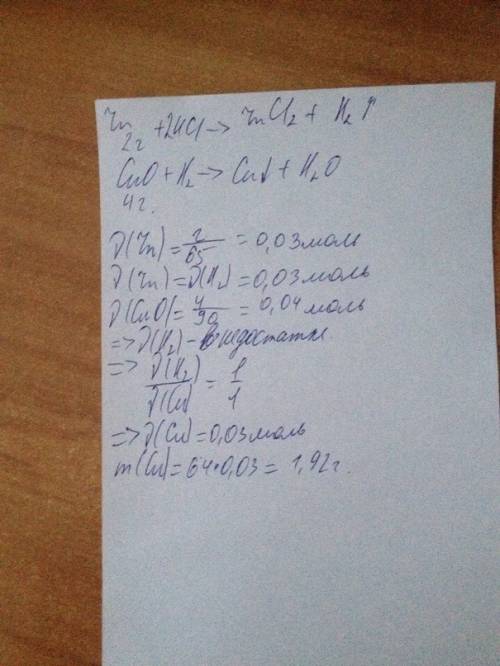 Zn + 2HCl → ZnCl₂ + H₂↑
2г
CuO + H₂ → Cu↓ + H₂O
4г.
ν(Zn) = 2/65 = 0,03 моль
ν(Zn) = ν(H₂) = 0,03 моль
ν(CuO) = 4/90 = 0,04 моль
=> ν(H₂) - в недостатке
=> ν(H₂)/ν(Cu) = 1/1
=> ν(Cu) = 0,03 моль
m(Cu) = 64*0,03 = 1,92г.